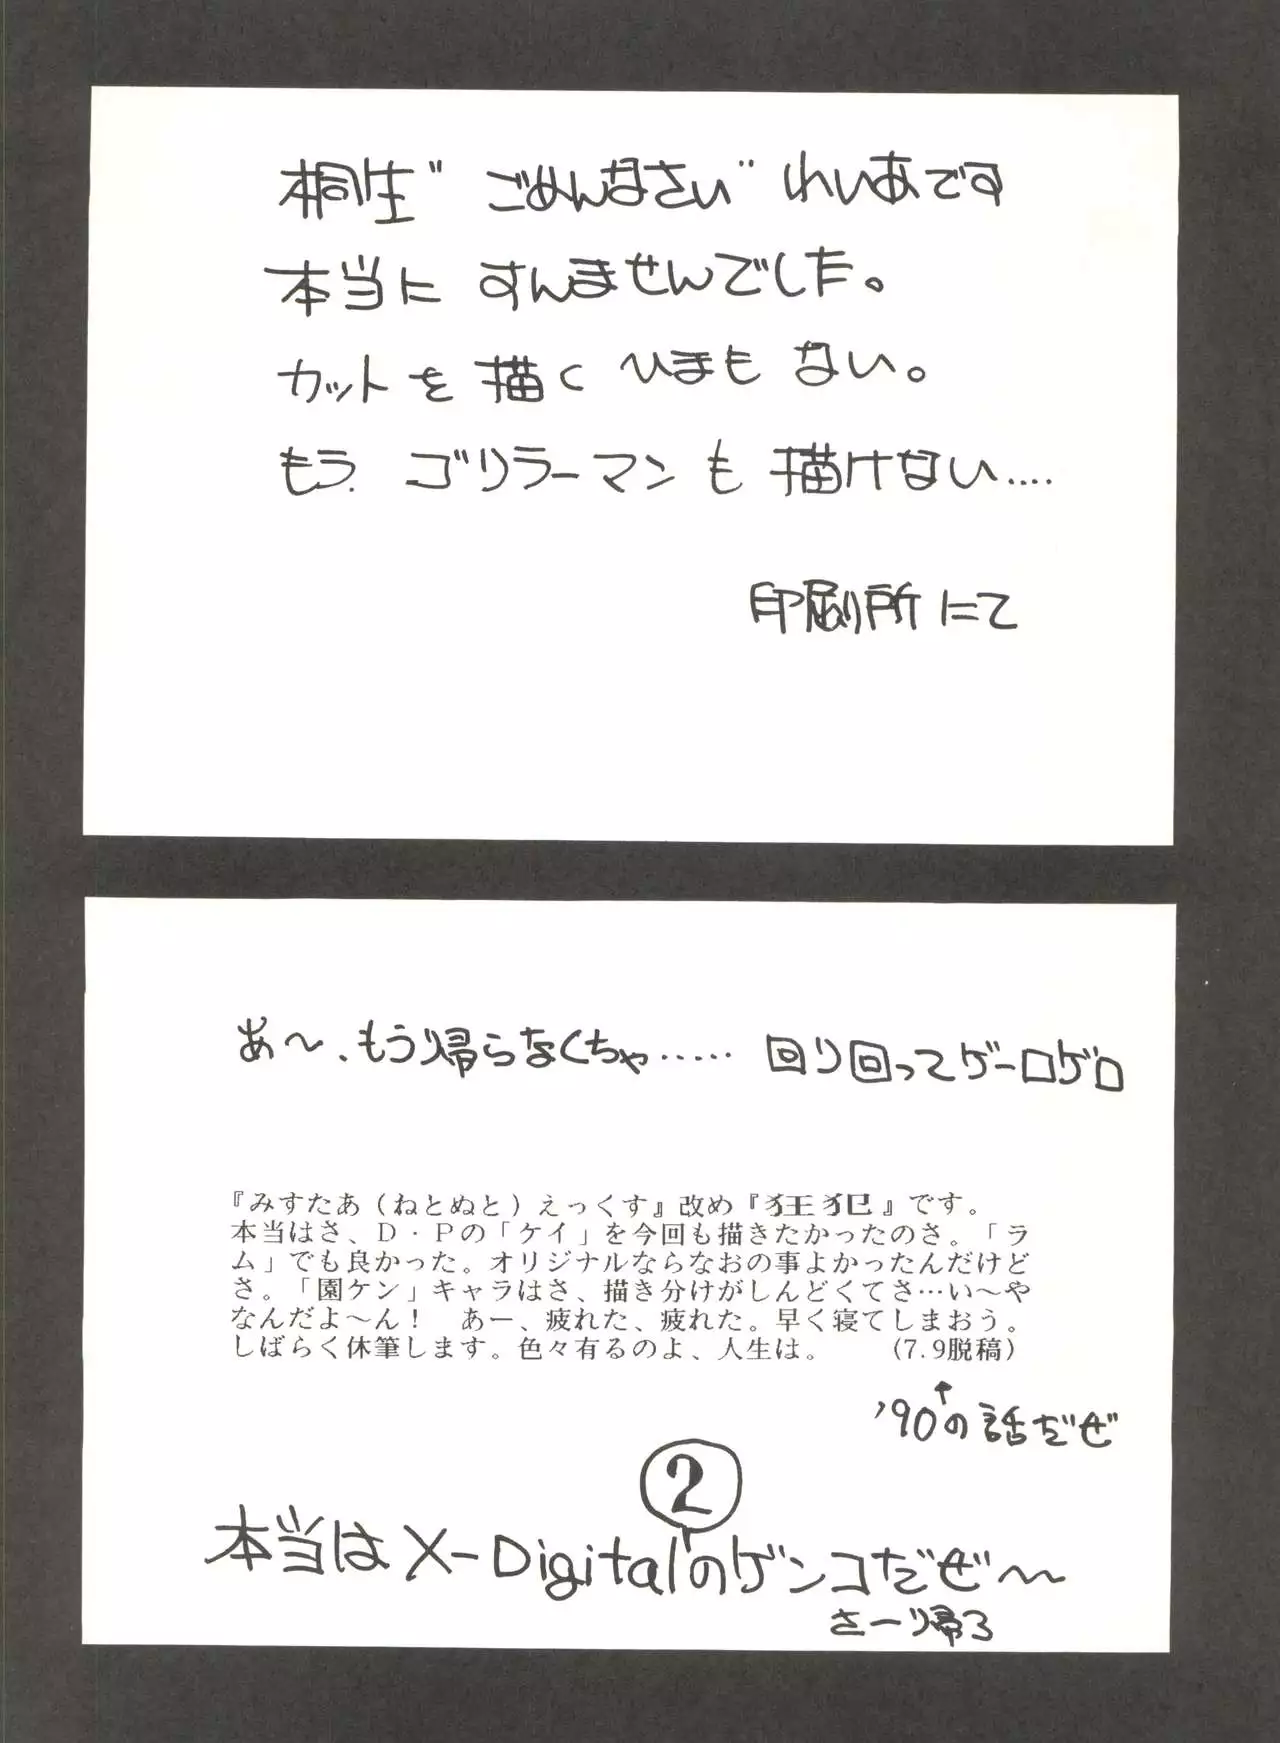 桐生"ごめんなさい"れいあです
本当に すんませんでした。
カットを描くひまもない。
もう、ゴリラーマンも描けない....
印刷所にて
あ〜、もう帰らなくちゃ…… 回り回ってゲーロゲロ
『みすたあ（ねとぬと）えっくす』改め『狂犯』です。
本当はさ、D・Pの「ケイ」を今回も描きたかったのさ。「ラ
ム」でも良かった。オリジナルならなおの事よかったんだけど
さ。「園ケン」キャラはさ、描き分けがしんどくてさ…い〜や
なんだよ〜ん！　あー、疲れた、疲れた。早く寝てしまおう。
しばらく休筆します。色々有るのよ、人生は。　　（7.9脱稿）
↑
'90の話だぜ
②
本当はX-Digitalのゲンコだぜ〜
さーり帰ろ